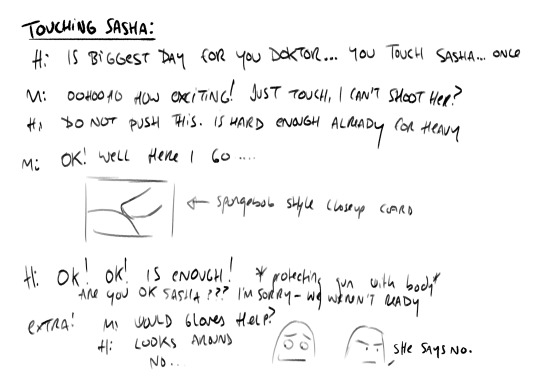 TOUCHING SASHA:
H: IS BIGGEST DAY FOR YOU DOKTOR... YOU TOUCH SASHA... ONCE
M: OOHOOHO HOW EXCITING! JUST TOUCH, I CAN'T SHOOT HER?
H: DO NOT PUSH THIS. IS HARD ENOUGH ALREADY FOR HEAVY
M: OK! WELL HERE I GO ....
← spongebob style closeup card
H: OK! OK! IS ENOUGH! *protecting gun with body*
ARE YOU OK SASHA??? I'M SORRY - WE WEREN'T READY
EXTRA! M: WOULD GLOVES HELP?
H: LOOKS AROUND
NO...
SHE SAYS NO.